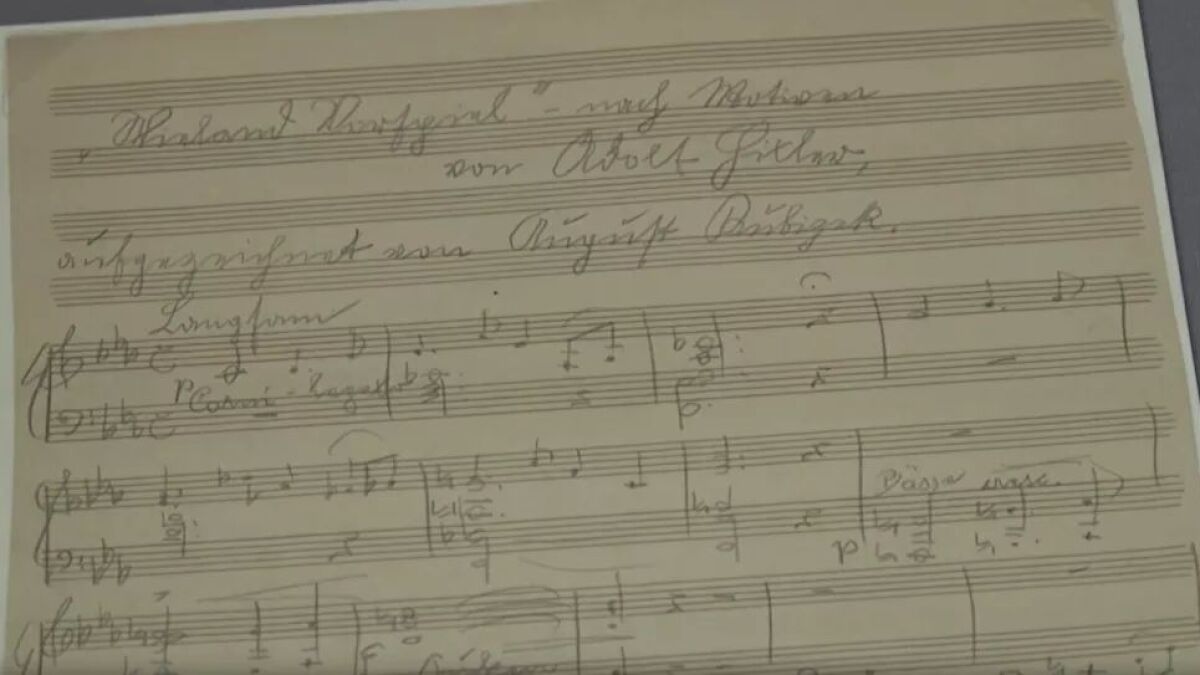 „Wieland Vorspiel" - nach Motiven
von Adolf Hitler,
aufgezeichnet von August Kubizek.
Langsam
p Corni - Fagotti
Bässe
p